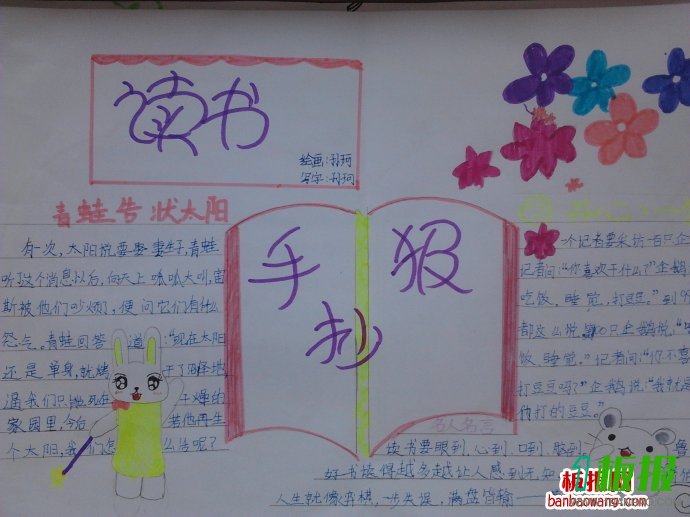 读书
绘画:孙珂
写字:孙珂
青蛙告状太阳
有一次,太阳说要娶妻生子,青蛙
听了这个消息以后,向天上呱呱大叫,宙
斯被他们吵烦了,便问它们有什么
怨气。青蛙回答道:“现在太阳
还是单身,就烤干了沼泽地,
逼我们只能死在干燥的
家园里,今后若他再生
个太阳,我们怎么活呢?
手抄报
一个记者要采访一百只企
记者问:“你喜欢干什么?”企鹅
吃饭、睡觉,打豆豆。”到9
都这么说,
只企鹅说:“
饭、睡觉。”记者问:“你不喜
打豆豆吗?”企鹅说:“我就是
他打的豆豆。”
名人名言
读书要眼到、心到、口到、
好书读得越多越让人感到无知
人生就像弈棋,一步失误,满盘皆输
板报
板报网
banbaowang.com